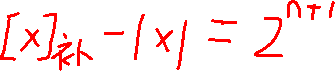 [x]补-|x|=2^{n+1}